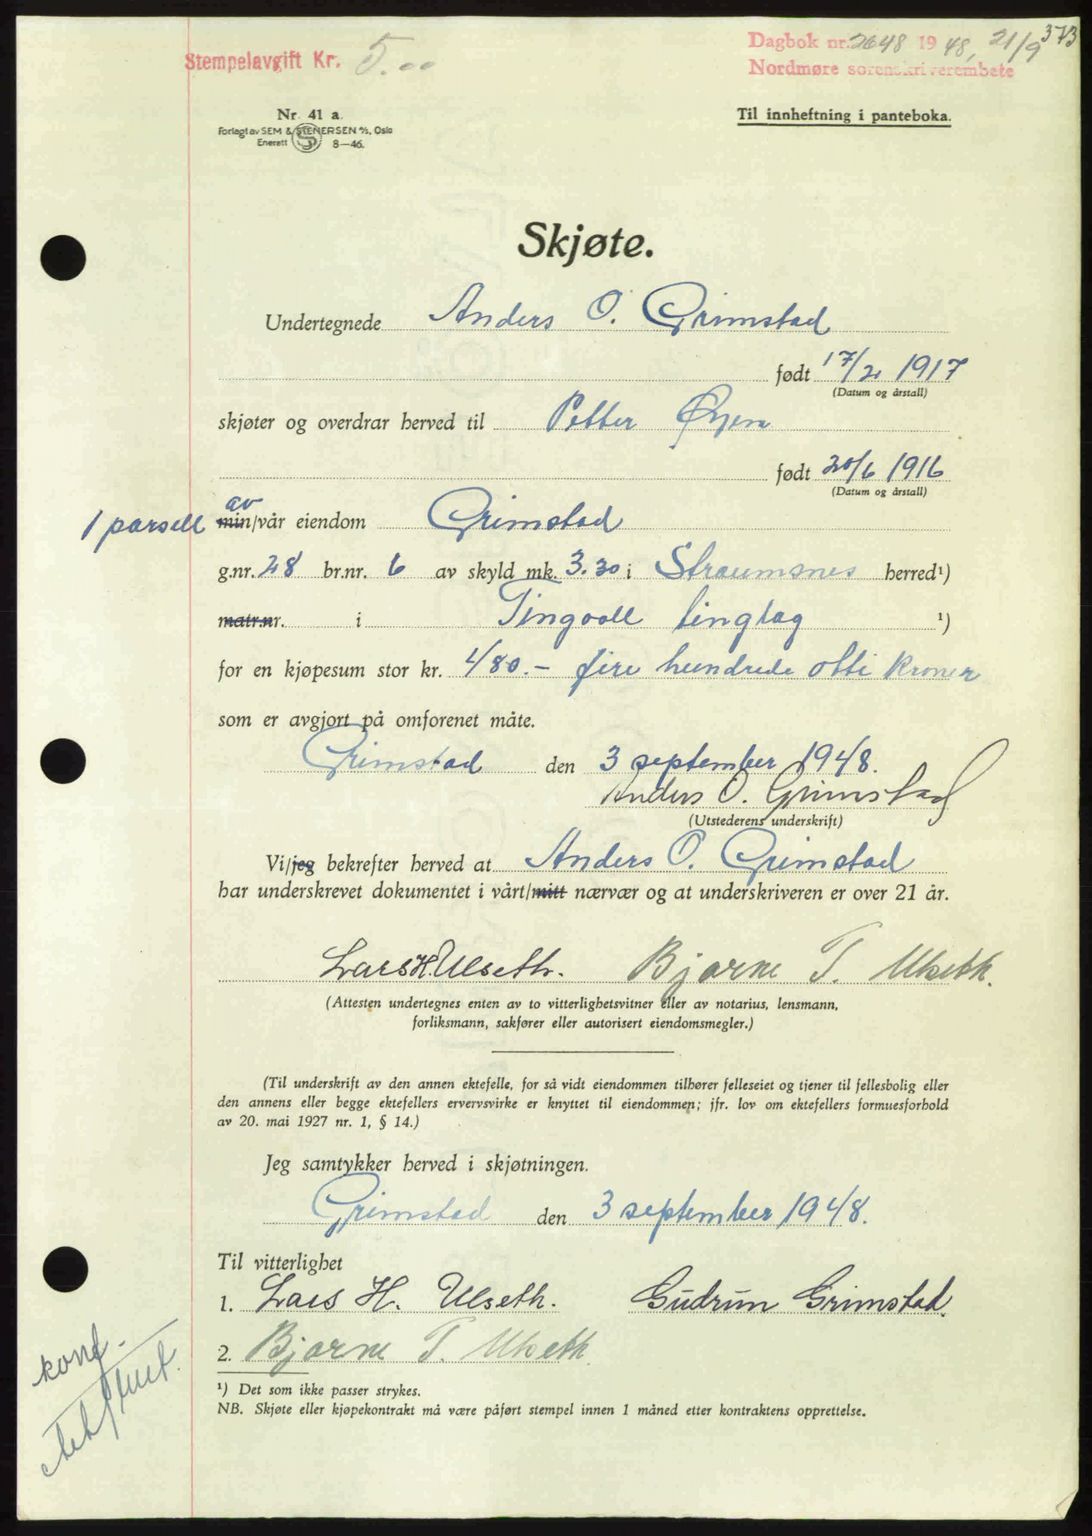 373
Stempelavgift Kr. 5.00
Dagbok nr. 2648 1948, 21/9
Nordmøre sorenskriverembete
Nr. 41 a.
Forlagt av SEM & STENERSEN A/S, Oslo
Enerett 8—46.
Til innheftning i panteboka.
Skjøte.
Undertegnede Anders O. Grimstad
født 17/2 1917
(Datum og årstall)
skjøter og overdrar herved til Petter Øyen
født 20/6 1916
(Datum og årstall)
1 parsell av min/vår eiendom Grimstad
g.nr. 28 br.nr. 6 av skyld mk. 3.30 i Straumsnes herred¹)
matr.nr. i Tingvoll tinglag ¹)
for en kjøpesum stor kr. 480.- fire hundrede otti kroner
som er avgjort på omforenet måte.
Grimstad den 3 september 1948.
Anders O. Grimstad
(Utstederens underskrift)
Vi/jeg bekrefter herved at Anders O. Grimstad
har underskrevet dokumentet i vårt/mitt nærvær og at underskriveren er over 21 år.
Lars H. Ulseth. Bjarne T. Ulseth.
(Attesten undertegnes enten av to vitterlighetsvitner eller av notarius, lensmann,
forliksmann, sakfører eller autorisert eiendomsmegler.)
(Til underskrift av den annen ektefelle, for så vidt eiendommen tilhører felleseiet og tjener til fellesbolig eller
den annens eller begge ektefellers ervervsvirke er knyttet til eiendommen; jfr. lov om ektefellers formuesforhold
av 20. mai 1927 nr. 1, § 14.)
Jeg samtykker herved i skjøtningen.
Grimstad den 3 september 1948.
Til vitterlighet
1. Lars H. Ulseth. Gudrun Grimstad.
2. Bjarne T. Ulseth
konf.
¹) Det som ikke passer strykes.
NB. Skjøte eller kjøpekontrakt må være påført stempel innen 1 måned etter kontraktens opprettelse.